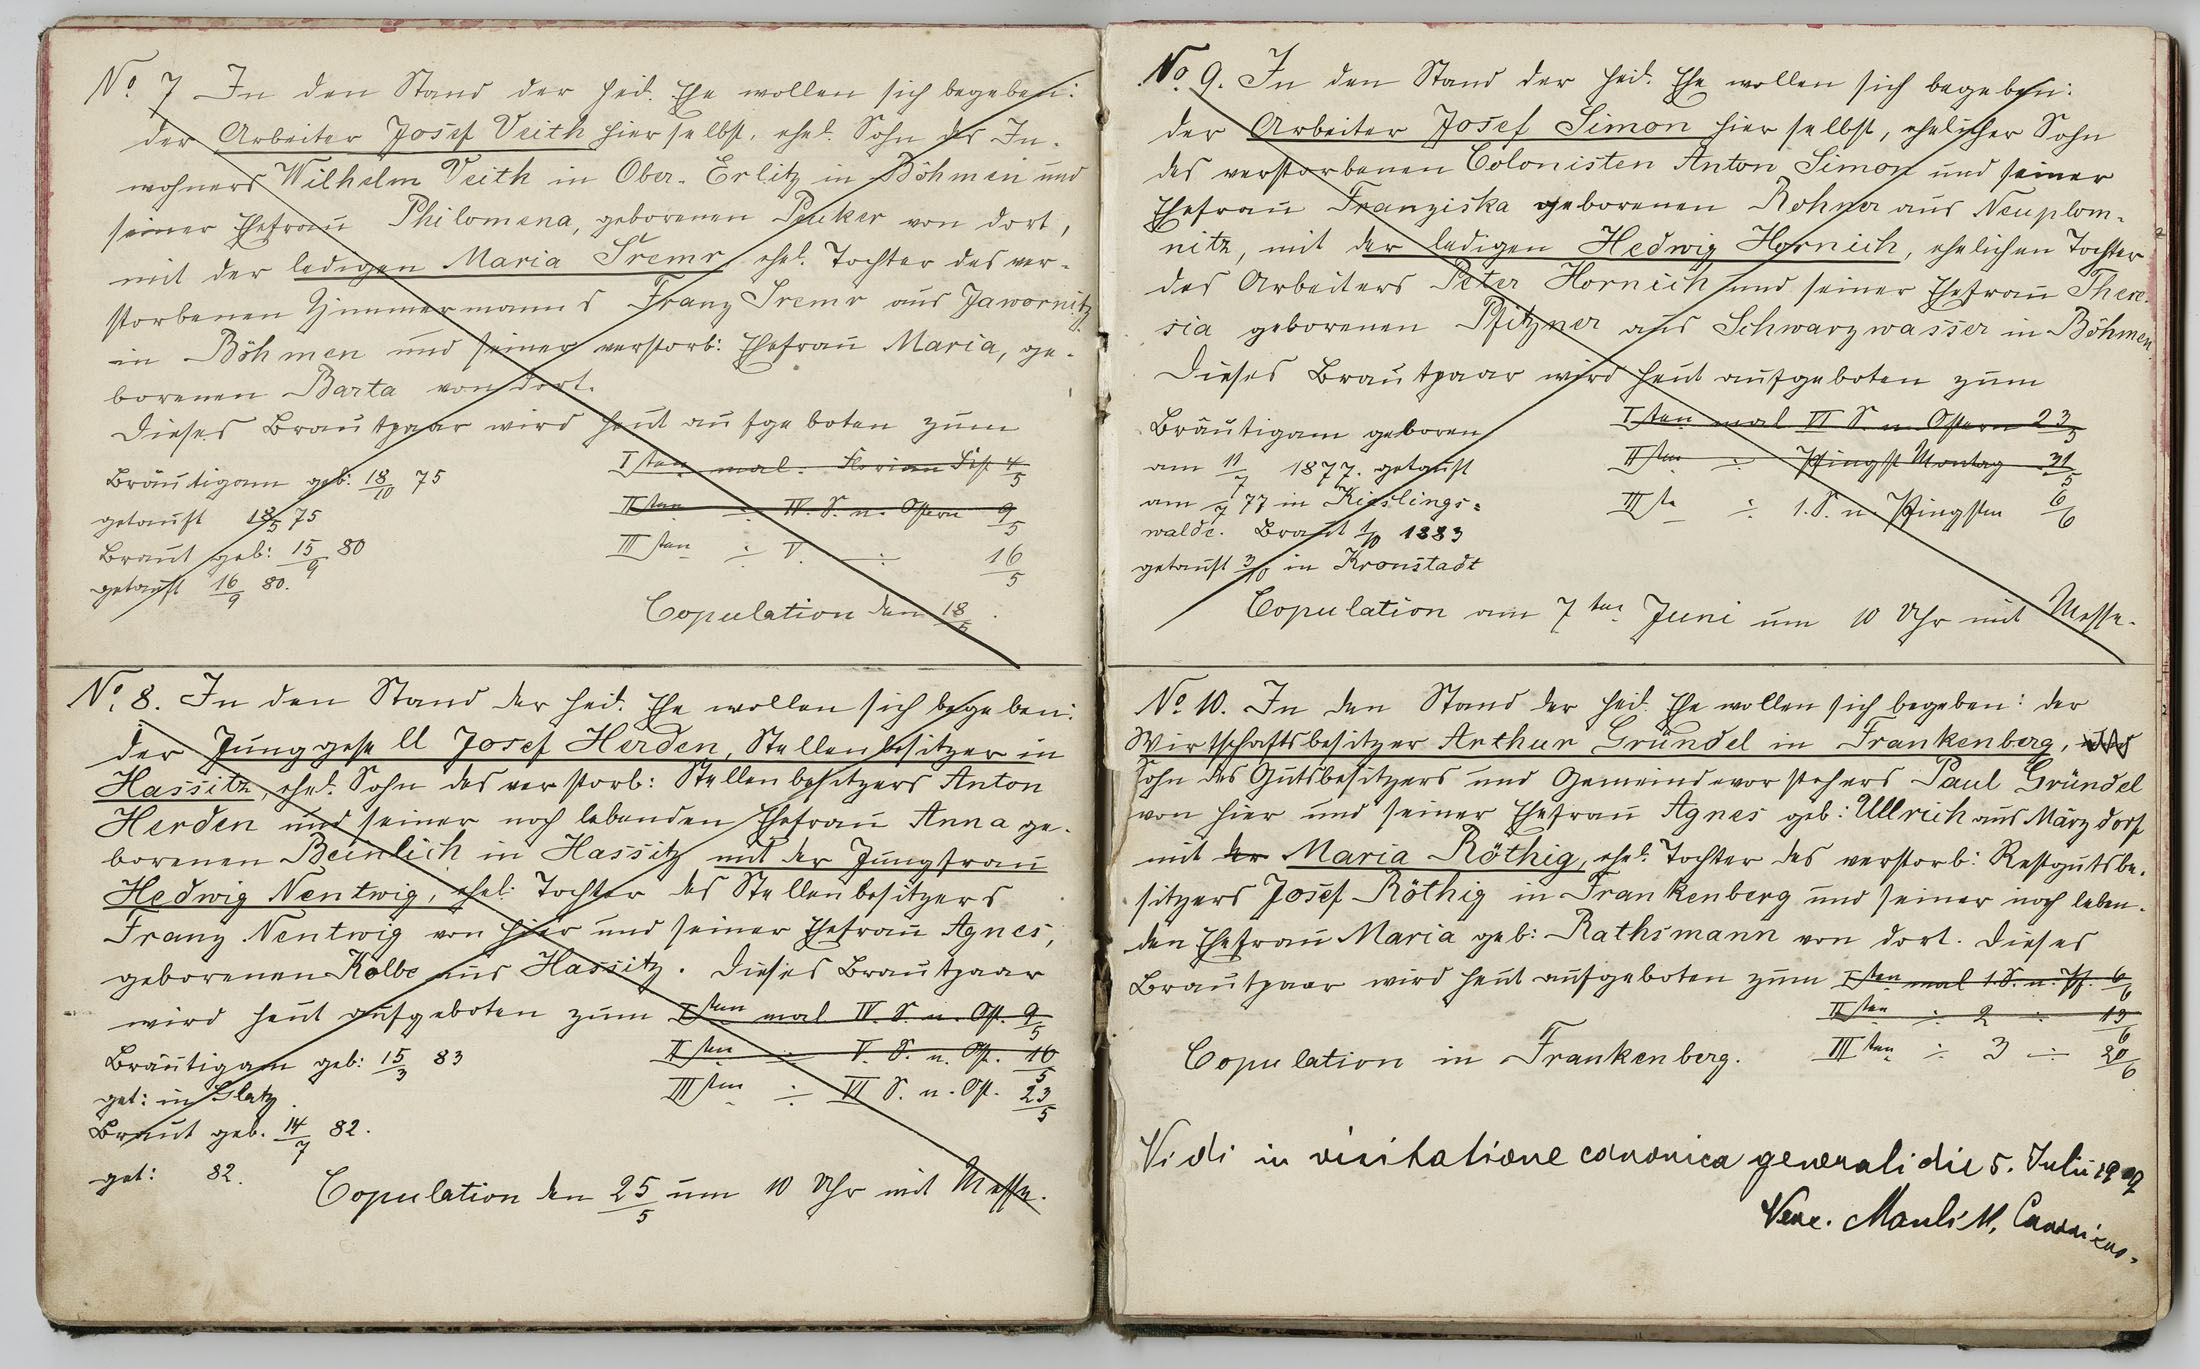 No. 7 In den Stand der heil. Ehe wollen sich begeben:
der Arbeiter Josef Veith hierselbst, ehel. Sohn des In-
wohners Wilhelm Veith in Ober-Erlitz in Böhmen und
seiner Ehefrau Philomena, geborenen Peuker von dort,
mit der ledigen Maria Šremr ehel. Tochter des ver-
storbenen Zimmermanns Franz Šremr aus Jawornitz
in Böhmen und seiner verstorb: Ehefrau Maria, ge-
borenen Barta von dort.
Dieses Brautpaar wird heut aufgeboten zum
Isten mal. Florian Fest 4/5
IIsten ÷ IV. S. n. Ostern 9/5
IIIsten ÷ V. ÷ 16/5
Bräutigam geb: 18/10 75
getauft 18/5 75
Braut geb: 15/9 80
getauft 16/9 80.
Copulation den 18/5.
No. 8. In den Stand der heil. Ehe wollen sich begeben:
der Junggesell Josef Herden, Stellenbesitzer in
Hassitz, ehel. Sohn des verstorb: Stellenbesitzers Anton
Herden und seiner noch lebenden Ehefrau Anna ge-
borenen Beinlich in Hassitz mit der Jungfrau
Hedwig Nentwig, ehel: Tochter des Stellenbesitzers
Franz Nentwig von hier und seiner Ehefrau Agnes,
geborenen Kolbe aus Hassitz. Dieses Brautpaar
wird heut aufgeboten zum Isten mal IV. S. n. Ost. 9/5
IIsten ÷ V. S. n. Ost. 16/5
IIIsten ÷ VI S. n. Ost. 23/5
Bräutigam geb: 15/3 83
get: in Glatz.
Braut geb. 14/7 82.
get: 82.
Copulation den 25/5 um 10 Uhr mit Messe.
No. 9. In den Stand der heil. Ehe wollen sich begeben:
der Arbeiter Josef Simon hierselbst, ehelicher Sohn
des verstorbenen Colonisten Anton Simon und seiner
Ehefrau Franziska geborenen Rohner aus Neuplom-
nitz, mit der ledigen Hedwig Hornich, ehelichen Tochter
des Arbeiters Peter Hornich und seiner Ehefrau There-
sia geborenen Pfitzner aus Schwarzwasser in Böhmen.
Dieses Brautpaar wird heut aufgeboten zum
Isten mal VI S. n. Ostern 23/5
IIten ÷ Pfingst Montag 31/5
IIIte ÷ 1. S. n. Pfingsten 6/6
Bräutigam geboren
am 11/7 1877. getauft
am /7 77 in Kieslings-
walde. Braut 1/10 1883
getauft 3/10 in Kronstadt
Copulation am 7ten Juni um 10 Uhr mit Messe.
No. 10. In den Stand der heil. Ehe wollen sich begeben: der
Wirtschaftsbesitzer Arthur Gründel in Frankenberg,
Sohn des Gutsbesitzers und Gemeindevorstehers Paul Gründel
von hier und seiner Ehefrau Agnes geb: Ullrich aus Märzdorf
mit der Maria Röthig, ehel: Tochter des verstorb: Restgutsbe-
sitzers Josef Röthig in Frankenberg und seiner noch leben-
den Ehefrau Maria geb: Rathsmann von dort. Dieses
Brautpaar wird heut aufgeboten zum Isten mal 1. S. n. Pf. 6/6
IIten ÷ 2 ÷ 13/6
IIIten ÷ 3 ÷ 20/6
Copulation in Frankenberg.
Vidi in visitatione canonica generali die 5. Julii 1909
Canonicus.